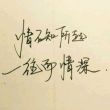 情不知所起
一往而情深